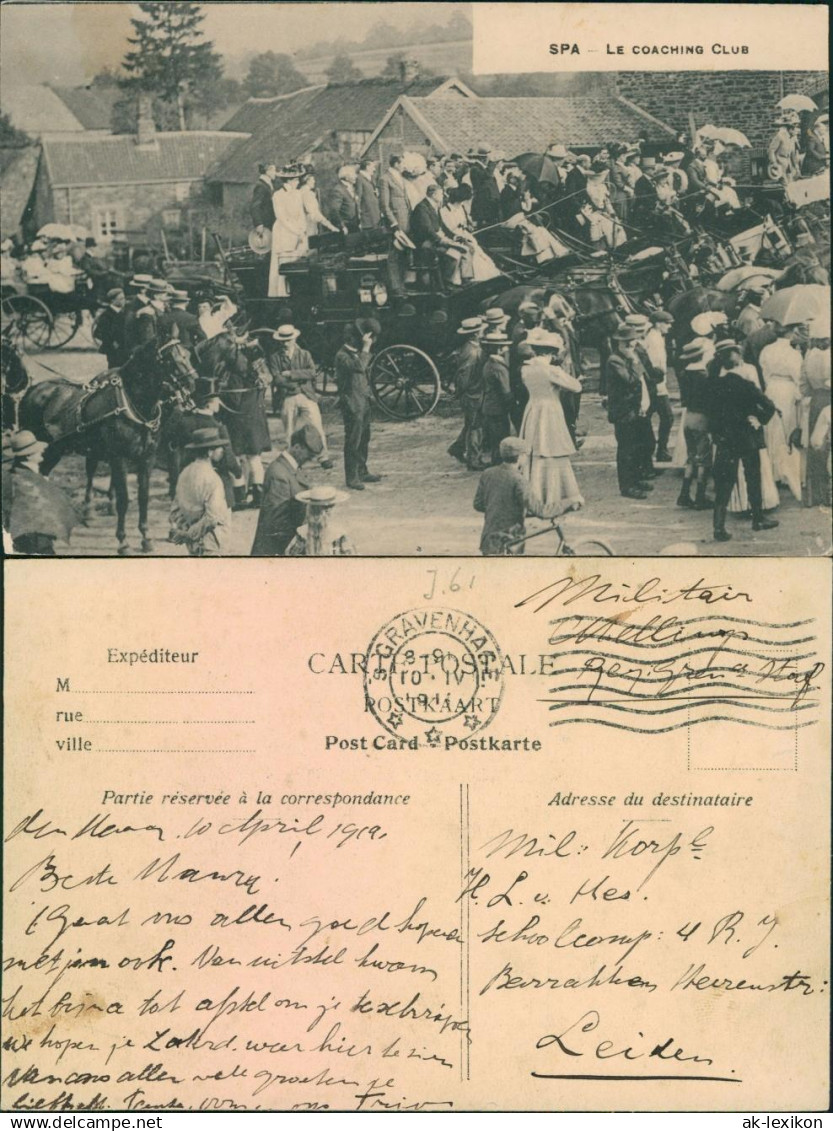 SPA – LE COACHING CLUB
J.61
Militair
Expéditeur
'S GRAVENHAGE.
10. IV
CARTE POSTALE
POSTKAART
M
rue
ville
Post Card Postkarte
Partie réservée à la correspondance
Adresse du destinataire
10 April 1919.
Beste
Gaat ons allen goed hopen
met jou ook. Van uitstel kwam
het bijna tot afstel om je te schrijven
we hopen je Zaterd. weer hier te zien
van ons allen vele groeten je
Mil: Korpl
H. L. v. Hes.
Schoolcomp: 4 R. J.
Barrakken Heerenstr:
Leiden.
ak-lexikon
www.delcampe.net